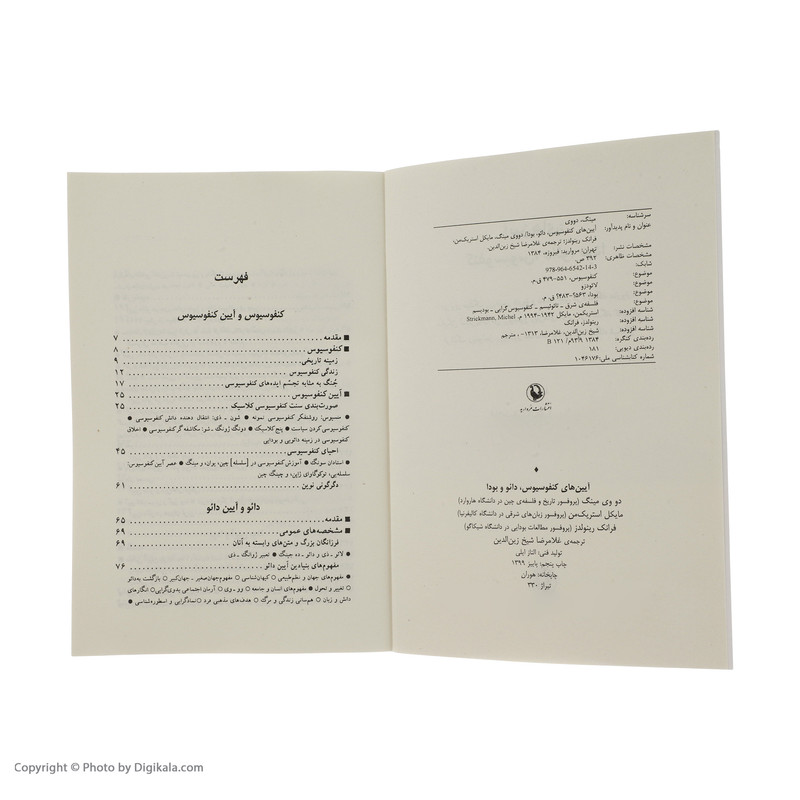 سرشناسه: مینگ، دووی
عنوان و نام پدیدآور: آیین‌های کنفوسیوس، دائو، بودا/ دووی مینگ، مایکل استریک‌من،
فرانک رینولدز؛ ترجمه‌ی غلامرضا شیخ زین‌الدین.
مشخصات نشر: تهران: مروارید: فیروزه، ۱۳۸۴
مشخصات ظاهری: ۳۹۲ ص.
شابک: 978-964-6542-14-3
موضوع: کنفوسیوس، ۵۵۱-۴۷۹ ق.م.
موضوع: لائودزو
موضوع: بودا، ۵۶۳؟-۴۸۳؟ ق.م.
موضوع: فلسفه‌ی شرق - تائوئیسم - کنفوسیوس‌گرایی - بودیسم
شناسه افزوده: استریکمن، مایکل ۱۹۴۲-۱۹۹۴ م. Strickmann, Michel
شناسه افزوده: رینولدز، فرانک
شناسه افزوده: شیخ زین‌الدین، غلامرضا، ۱۳۱۳-، مترجم
رده‌بندی کنگره: ۱۳۸۴ ۹آ۲۳م/ B ۱۲۱
رده‌بندی دیویی: ۱۸۱
شماره کتابشناسی ملی: ۱۰۴۶۱۷۶
انتشارات مروارید
آیین‌های کنفوسیوس، دائو و بودا
دو وی مینگ (پروفسور تاریخ و فلسفه‌ی چین در دانشگاه هاروارد)
مایکل استریک‌من (پروفسور زبان‌های شرقی در دانشگاه کالیفرنیا)
فرانک رینولدز (پروفسور مطالعات بودایی در دانشگاه شیکاگو)
ترجمه‌ی غلامرضا شیخ زین‌الدین
تولید فنی: الناز ایلی
چاپ پنجم: پاییز ۱۳۹۹
چاپخانه: هوران
تیراژ ۳۳۰
فهرست
کنفوسیوس و آیین کنفوسیوس
■ مقدمه ۷
■ کنفوسیوس ۸
زمینه تاریخی ۹
زندگی کنفوسیوس ۱۲
جُنگ به مثابه تجسّم ایده‌های کنفوسیوسی ۱۷
■ آیین کنفوسیوس ۲۵
صورت‌بندی سنت کنفوسیوسی کلاسیک ۲۵
● منسیوس: روشنفکر کنفوسیوسی نمونه ● شون - ذی: انتقال دهنده دانش کنفوسیوسی ●
کنفوسیوسی کردن سیاست ● پنج کلاسیک ● دونگ ژونگ - شو: مکاشفه گر کنفوسیوسی ● اخلاق
کنفوسیوسی در زمینه دائویی و بودایی
احیای کنفوسیوسی ۴۵
● استادان سونگ ● آموزش کنفوسیوسی در [سلسله] چین، یوان، و مینگ ● عصر آیین کنفوسیوس:
سلسله‌یی، توکوگاوای ژاپن، و چینگ چین
دگرگونی نوین ۶۱
دائو و آیین دائو
■ مقدمه ۶۵
■ مشخصه‌های عمومی ۶۹
فرزانگان بزرگ و متن‌های وابسته به آنان ۶۹
● لائو - ذی و دائو - ده جینگ ● تعبیر ژوانگ - ذی
مفهوم‌های بنیادین آیین دائو ۷۶
● مفهوم‌های جهان و نظم‌طبیعی ○ کیهان‌شناسی ○ مفهوم‌جهان‌صغیر - جهان‌کبیر ○ بازگشت به‌دائو
○ تغییر و تحول ● مفهوم‌های انسان و جامعه ○ وو - وی ○ آرمان اجتماعی بدوی‌گرایی ○ انگارهای
دانش و زبان ○ هم‌سانی زندگی و مرگ ○ هدف‌های مذهبی فرد ○ نمادگرایی و اسطوره‌شناسی ●
Copyright © Photo by Digikala.com